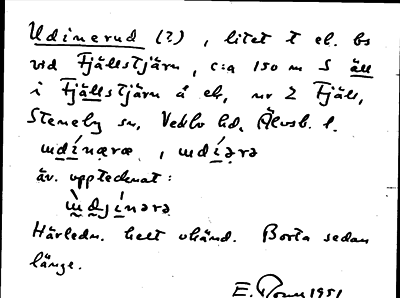 Udinerud (?), litet t ek. bs
vid Fjällstjärn, c:a 150 m S äll
i Fjällstjärn å ek. nr 2 Fjäll,
Steneby sn, Vedbo hd, Älvsb. l.
äv. upptecknat:
Härledn. helt okänd. Borta sedan
länge.
E. 1951